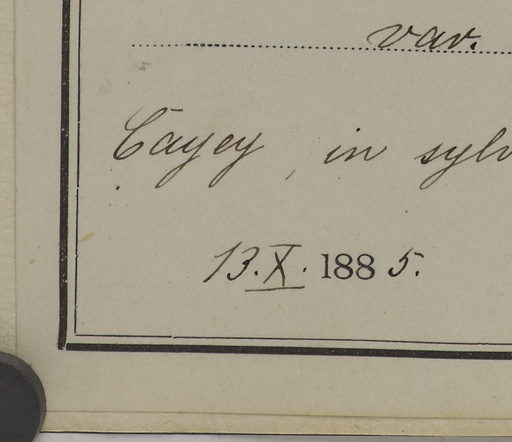 var.
Cayey, in sylv
13.X. 1885.